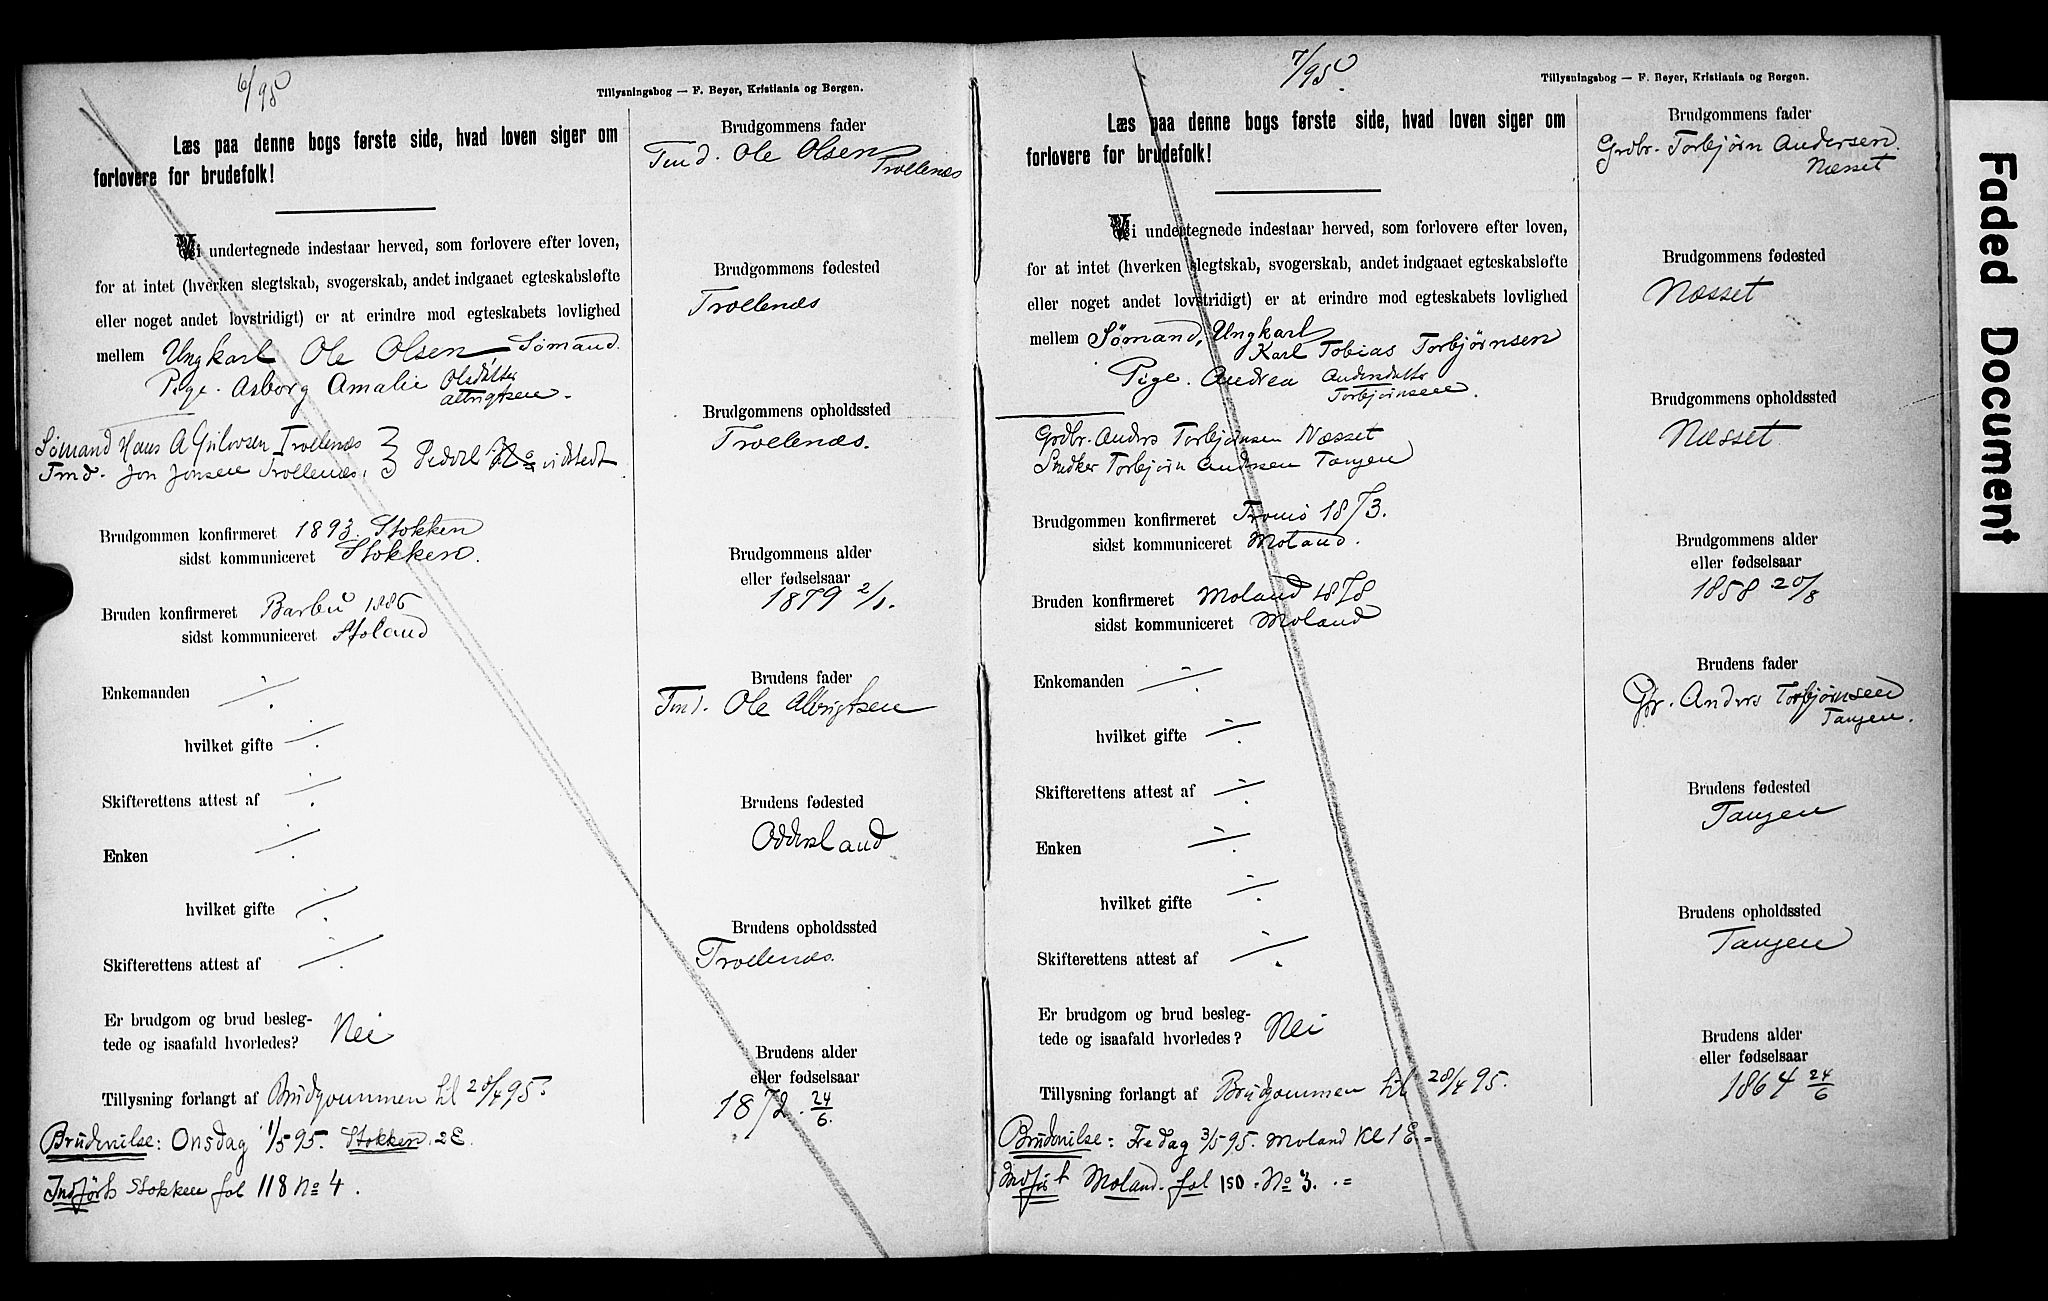 6/95
Tillysningsbog — F. Beyer, Kristiania og Bergen.
Læs paa denne bogs første side, hvad loven siger om
forlovere for brudefolk!
Vi undertegnede indestaar herved, som forlovere efter loven,
for at intet (hverken slegtskab, svogerskab, andet indgaaet egteskabsløfte
eller noget andet lovstridigt) er at erindre mod egteskabets lovlighed
mellem Ungkarl Ole Olsen Sømand.
Pige. Asborg Amalie Olsdatter
Albrigtsen.
Sømand Hans A Trollenæs
Tmd. Jon Jensen Trollenæs.
Brudgommen konfirmeret 1893. Stokken
sidst kommuniceret Stokken.
Bruden konfirmeret Barbu 1886
sidst kommuniceret
Enkemanden ./.
hvilket gifte ./.
Skifterettens attest af ./.
Enken ./.
hvilket gifte ./.
Skifterettens attest af ./.
Er brudgom og brud besleg-
tede og isaafald hvorledes? Nei
Tillysning forlangt af Brudgommen til 20/4 95.
Brudevielse: Onsdag 1/5 95. Stokken. 2 E.
Indført Stokken fol 118 No 4.
Brudgommens fader
Tmd. Ole Olsen
Trollenæs
Brudgommens fødested
Trollenæs
Brudgommens opholdssted
Trollenæs.
Brudgommens alder
eller fødselsaar
1879 2/1.
Brudens fader
Tmd. Ole Albrigtsen
Brudens fødested
Oddersland
Brudens opholdssted
Trollenæs.
Brudens alder
eller fødselsaar
1872. 24/6.
7/95
Tillysningsbog — F. Beyer, Kristiania og Bergen.
Læs paa denne bogs første side, hvad loven siger om
forlovere for brudefolk!
Vi undertegnede indestaar herved, som forlovere efter loven,
for at intet (hverken slegtskab, svogerskab, andet indgaaet egteskabsløfte
eller noget andet lovstridigt) er at erindre mod egteskabets lovlighed
mellem Sømand, Ungkarl
Karl Tobias Torbjørnsen
Pige. Andrea Andersdatter
Torbjørnsen.
Grdbr. Anders Torbjørnsen Næsset
Snedker Torbjørn Andersen Tangen
Brudgommen konfirmeret Tromø 1873.
sidst kommuniceret Moland.
Bruden konfirmeret Moland 1878
sidst kommuniceret Moland
Enkemanden ./.
hvilket gifte ./.
Skifterettens attest af ./.
Enken ./.
hvilket gifte ./.
Skifterettens attest af ./.
Er brudgom og brud besleg-
tede og isaafald hvorledes? Nei
Tillysning forlangt af Brudgommen til 28/4 95.
Brudevielse: Fredag 3/5 95. Moland Kl 1 E =
Indført Moland. fol 150. No 3. . =
Brudgommens fader
Grdbr. Torbjørn Andersen.
Næsset
Brudgommens fødested
Næsset
Brudgommens opholdssted
Næsset.
Brudgommens alder
eller fødselsaar
1858 20/8
Brudens fader
Gbr. Anders Torbjørnsen
Tangen.
Brudens fødested
Tangen
Brudens opholdssted
Tangen
Brudens alder
eller fødselsaar
1864 24/6
Faded Document